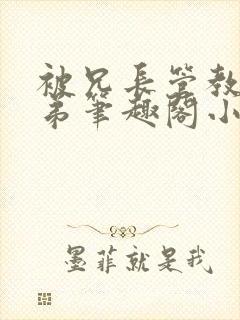 被兄长管教
弟笔趣阁小
墨菲就是我